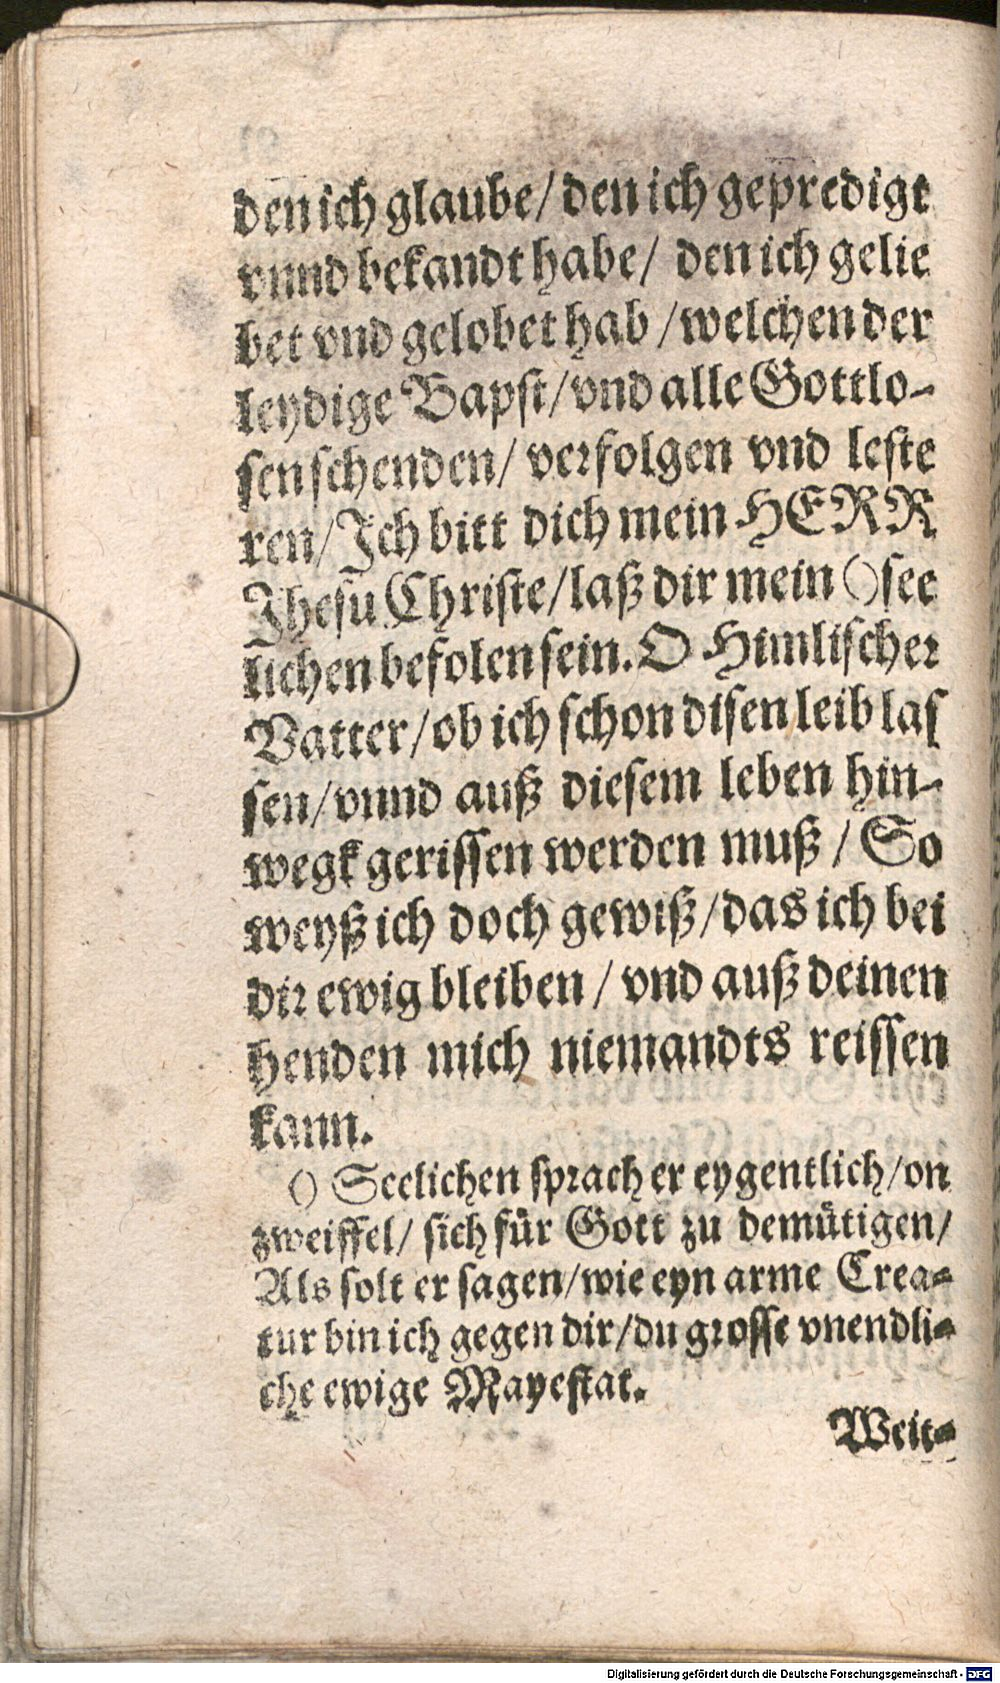 den ich glaube/ den ich gepredigt
vnnd bekandt habe/ den ich gelie
bet vnd gelobet hab /welchen der
leydige Bapst/vnd alle Gottlo-
sen schenden/ verfolgen vnd leste
ren/Ich bitt dich mein HERR
Jhesu Christe/laß dir mein ()see
lichen befolen sein. O Himlischer
Vatter/ob ich schon disen leib las
sen/vnnd auß diesem leben hin-
wegk gerissen werden muß / So
weyß ich doch gewiß/das ich bei
dir ewig bleiben / vnd auß deinen
henden mich niemandts reissen
kann.
() Seelichen sprach er eygentlich/on
zweiffel/ sich für Gott zu demütigen/
Als solt er sagen/wie eyn arme Crea-
tur bin ich gegen dir/du grosse vnendli-
che ewige Mayestat.
Weit-
Digitalisierung gefördert durch die Deutsche Forschungsgemeinschaft - DFG